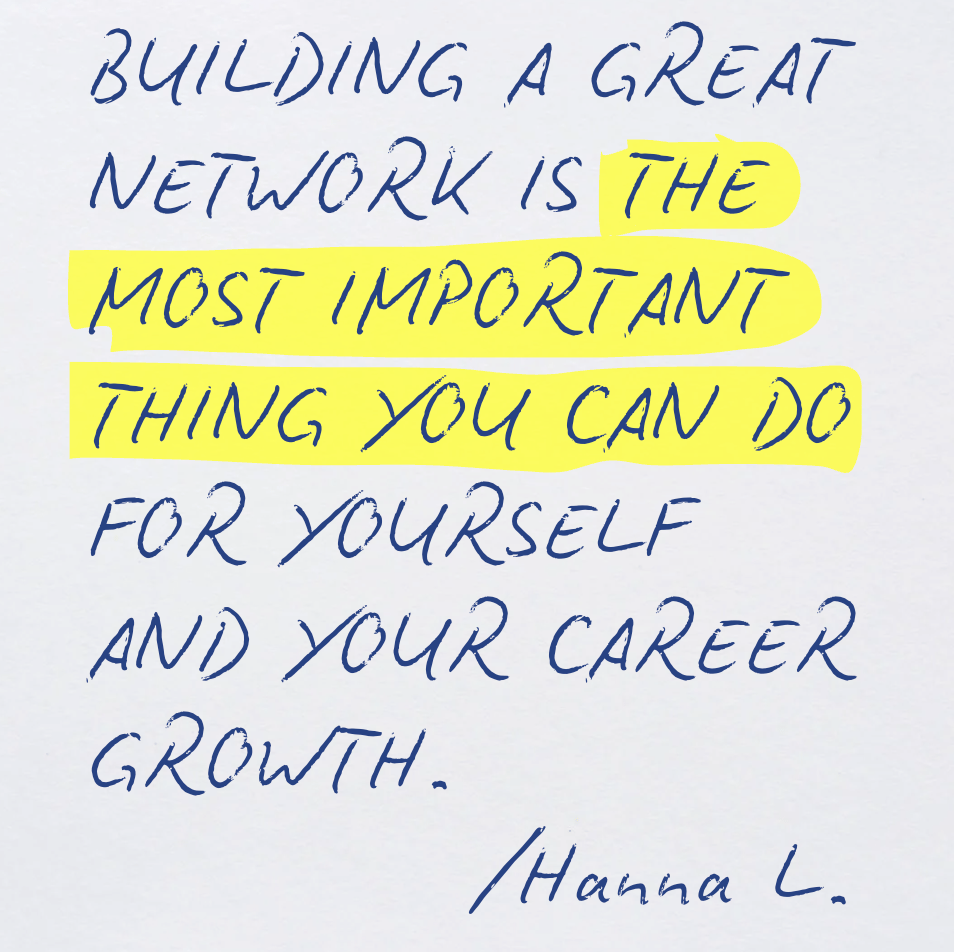 BUILDING A GREAT
NETWORK IS THE
MOST IMPORTANT
THING YOU CAN DO
FOR YOURSELF
AND YOUR CAREER
GROWTH.
/Hanna L.